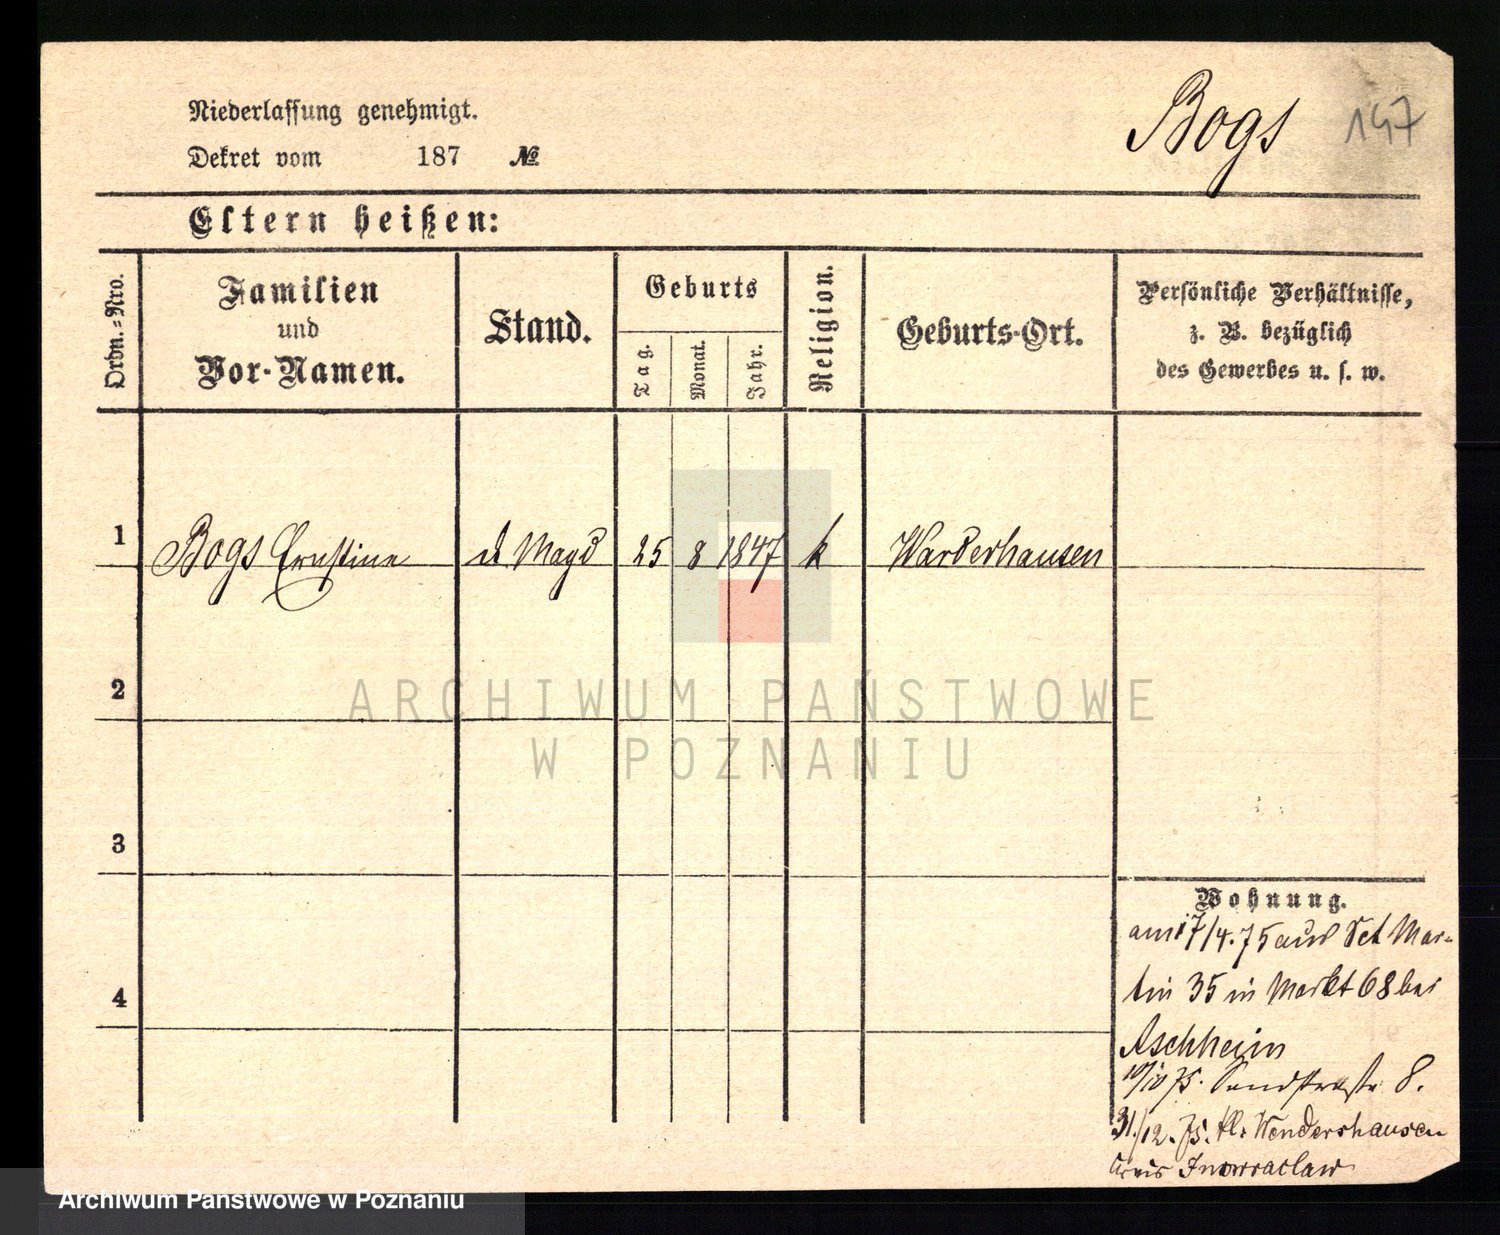 Niederlassung genehmigt.
Bogs 147
Dekret vom 187 №
Eltern heißen:
Ordn.=Nro.
Familien
und
Vor-Namen.
Stand.
Geburts
Tag.
Monat.
Jahr.
Religion.
Geburts-Ort.
Persönliche Verhältnisse,
z. B. bezüglich
des Gewerbes u. s. w.
1 Bogs Ernstine d Magd 25 8 1847 k Warderhausen
2
3
4
Wohnung.
am 17/4.75 aus Sct Mar-
tin 35 in Markt 68 bei
Aschheim
75. Sandstraße 8.
31/12.75. kl: Wendershausen
Kreis Inowraclaw
ARCHIWUM PAŃSTWOWE
W POZNANIU
Archiwum Państwowe w Poznaniu